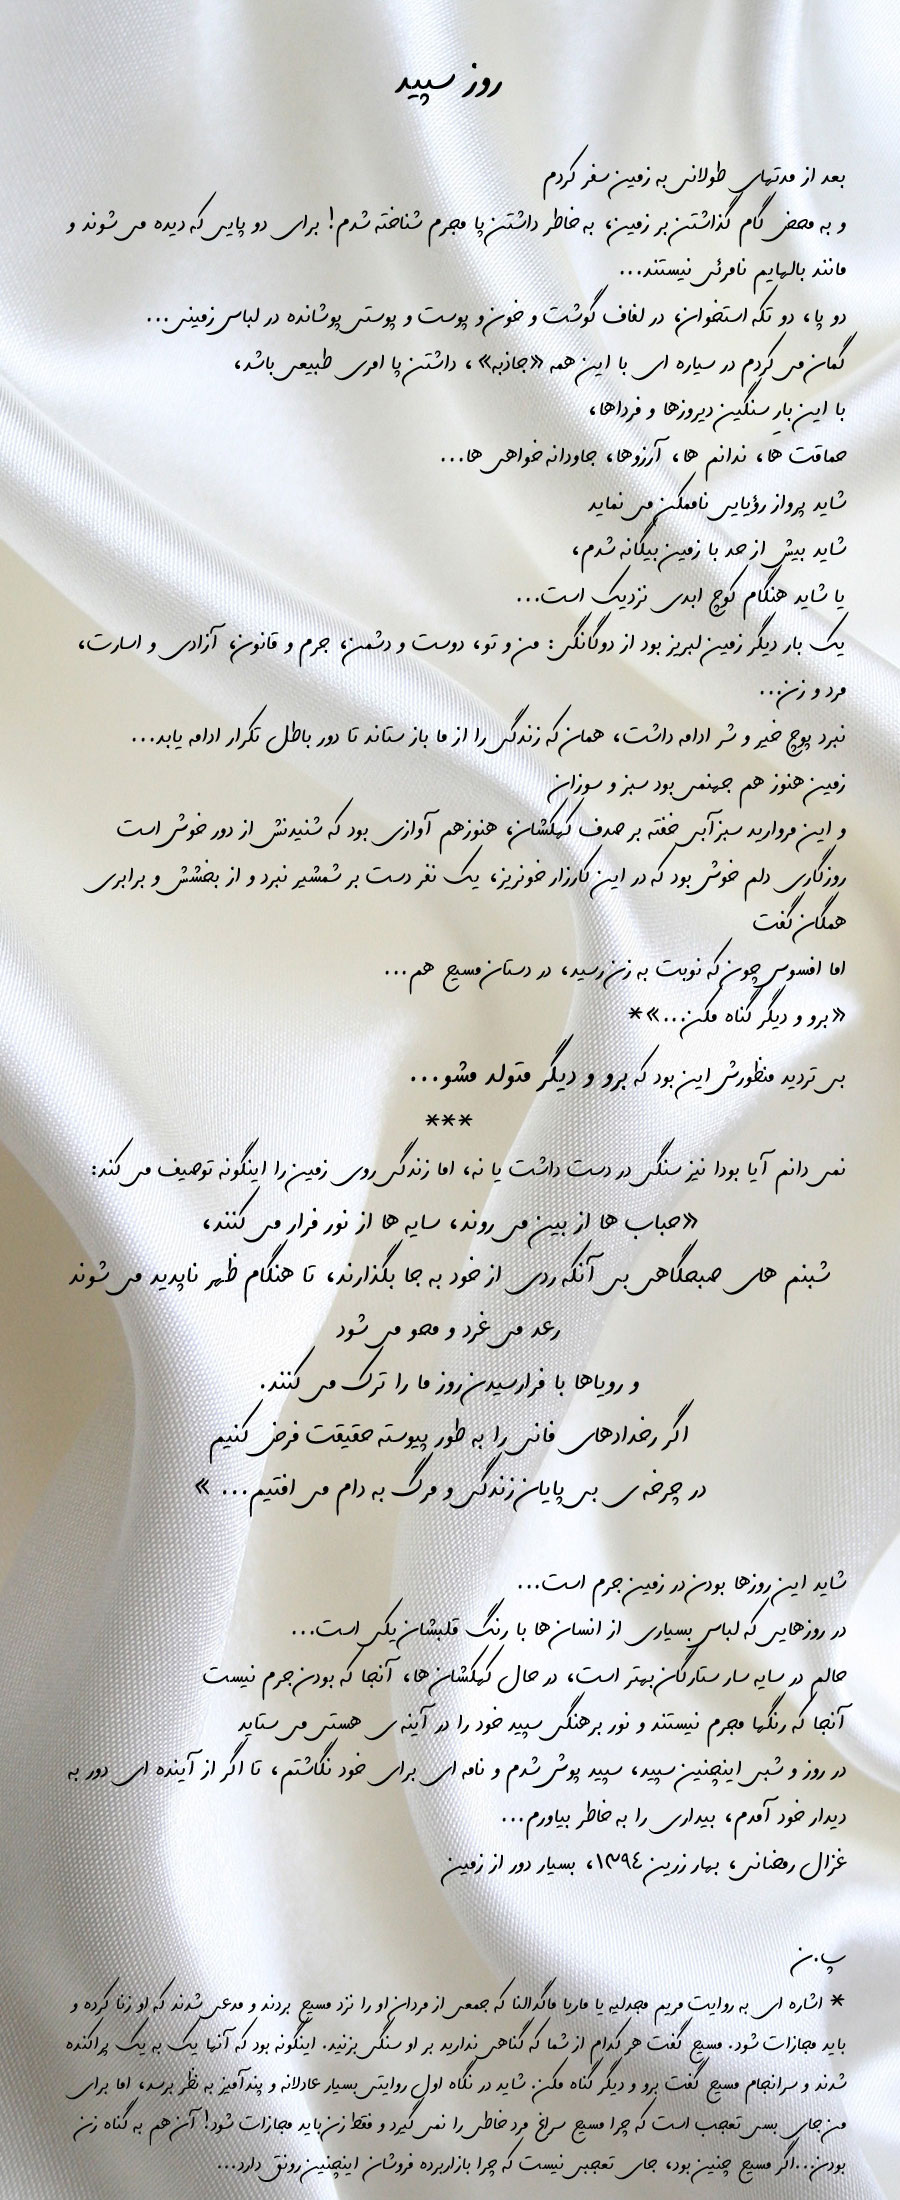 روز سپید
بعد از مدتهای طولانی به زمین سفر کردم
و به محض گام گذاشتن بر زمین، به خاطر داشتن پا مجرم شناخته شدم! برای دو پایی که دیده می شوند و
مانند بالهایم نامرئی نیستند...
دو پا، دو تکه استخوان، در لفاف گوشت و خون و پوست و پوستی پوشانده در لباس زمینی...
گمان می کردم در سیاره ای با این همه «جاذبه»، داشتن پا امری طبیعی باشد،
با این بارِ سنگین دیروزها و فرداها،
حماقت ها، ندانم ها، آرزوها، جاودانه خواهی ها...
شاید پرواز رؤیایی ناممکن می نماید
شاید بیش از حد با زمین بیگانه شدم،
یا شاید هنگام کوچ ابدی نزدیک است...
یک بار دیگر زمین لبریز بود از دوگانگی: من و تو، دوست و دشمن، جرم و قانون، آزادی و اسارت،
مرد و زن...
نبرد پوچ خیر و شر ادامه داشت، همان که زندگی را از ما باز ستاند تا دور باطل تکرار ادامه یابد...
زمین هنوز هم جهنمی بود سبز و سوزان
و این مروارید سبزآبی خفته بر صدف کهکشان، هنوزهم آوازی بود که شنیدنش از دور خوش است
روزگاری دلم خوش بود که در این کارزار خونریز، یک نفر دست بر شمشیر نبرد و از بخشش و برابری
همگان گفت
اما افسوس چون که نوبت به زن رسید، در دستان مسیح هم...
«برو و دیگر گناه مکن...»*
بی تردید منظورش این بود که برو و دیگر متولد مشو...
***
نمی دانم آیا بودا نیز سنگی در دست داشت یا نه، اما زندگی روی زمین را اینگونه توصیف می کند:
«حباب ها از بین می روند، سایه ها از نور فرار می کنند،
شبنم های صبحگاهی بی آنکه ردی از خود به جا بگذارند، تا هنگام ظهر ناپدید می شوند
رعد می غرد و محو می شود
و رویاها با فرارسیدن روز ما را ترک می کنند.
اگر رخدادهای فانی را به طور پیوسته حقیقت فرض کنیم
در چرخه ی بی پایان زندگی و مرگ به دام می افتیم... »
شاید این روزها بودن در زمین جرم است...
در روزهایی که لباس بسیاری از انسان ها با رنگ قلبشان یکی است...
حالم در سایه سار ستارگان بهتر است، در حال کهکشان ها، آنجا که بودن جرم نیست
آنجا که رنگها مجرم نیستند و نور برهنگی سپید خود را در آینه ی هستی می ستاید
در روز و شبی اینچنین سپید، سپید پوش شدم و نامه ای برای خود نگاشتم، تا اگر از آینده ای دور به
دیدار خود آمدم، بیداری را به خاطر بیاورم...
غزال رمضانی، بهار زرین ۱۳۹٤، بسیار دور از زمین
پ.ن
* اشاره ای به روایت مریم مجدلیه یا ماریا ماگدالنا که جمعی از مردان او را نزد مسیح بردند و مدعی شدند که او زنا کرده و
باید مجازات شود. مسیح گفت هر کدام از شما که گناهی ندارید بر او سنگی بزنید. اینگونه بود که آنها یک به یک پراکنده
شدند و سرانجام مسیح گفت برو و دیگر گناه مکن. شاید در نگاه اول روایتی بسیار عادلانه و پندآمیز به نظر برسد، اما برای
من جای بسی تعجب است که چرا مسیح سراغ مرد خاطی را نمی گیرد و فقط زن باید مجازات شود! آن هم به گناه زن
بودن...اگر مسیح چنین بود، جای تعجبی نیست که چرا بازار برده فروشان اینچنین رونق دارد...